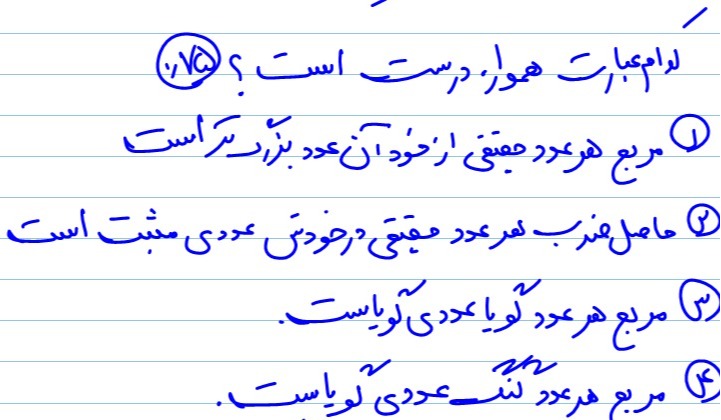 کدام عبارت همواره درست است؟ ۰/۷۵
۱ مربع هر عدد حقیقی از خود آن عدد بزرگ‌تر است
۲ حاصل‌ضرب هر عدد حقیقی در خودش عددی مثبت است
۳ مربع هر عدد گویا عددی گویاست.
۴ مربع هر عدد گنگ عددی گویاست.